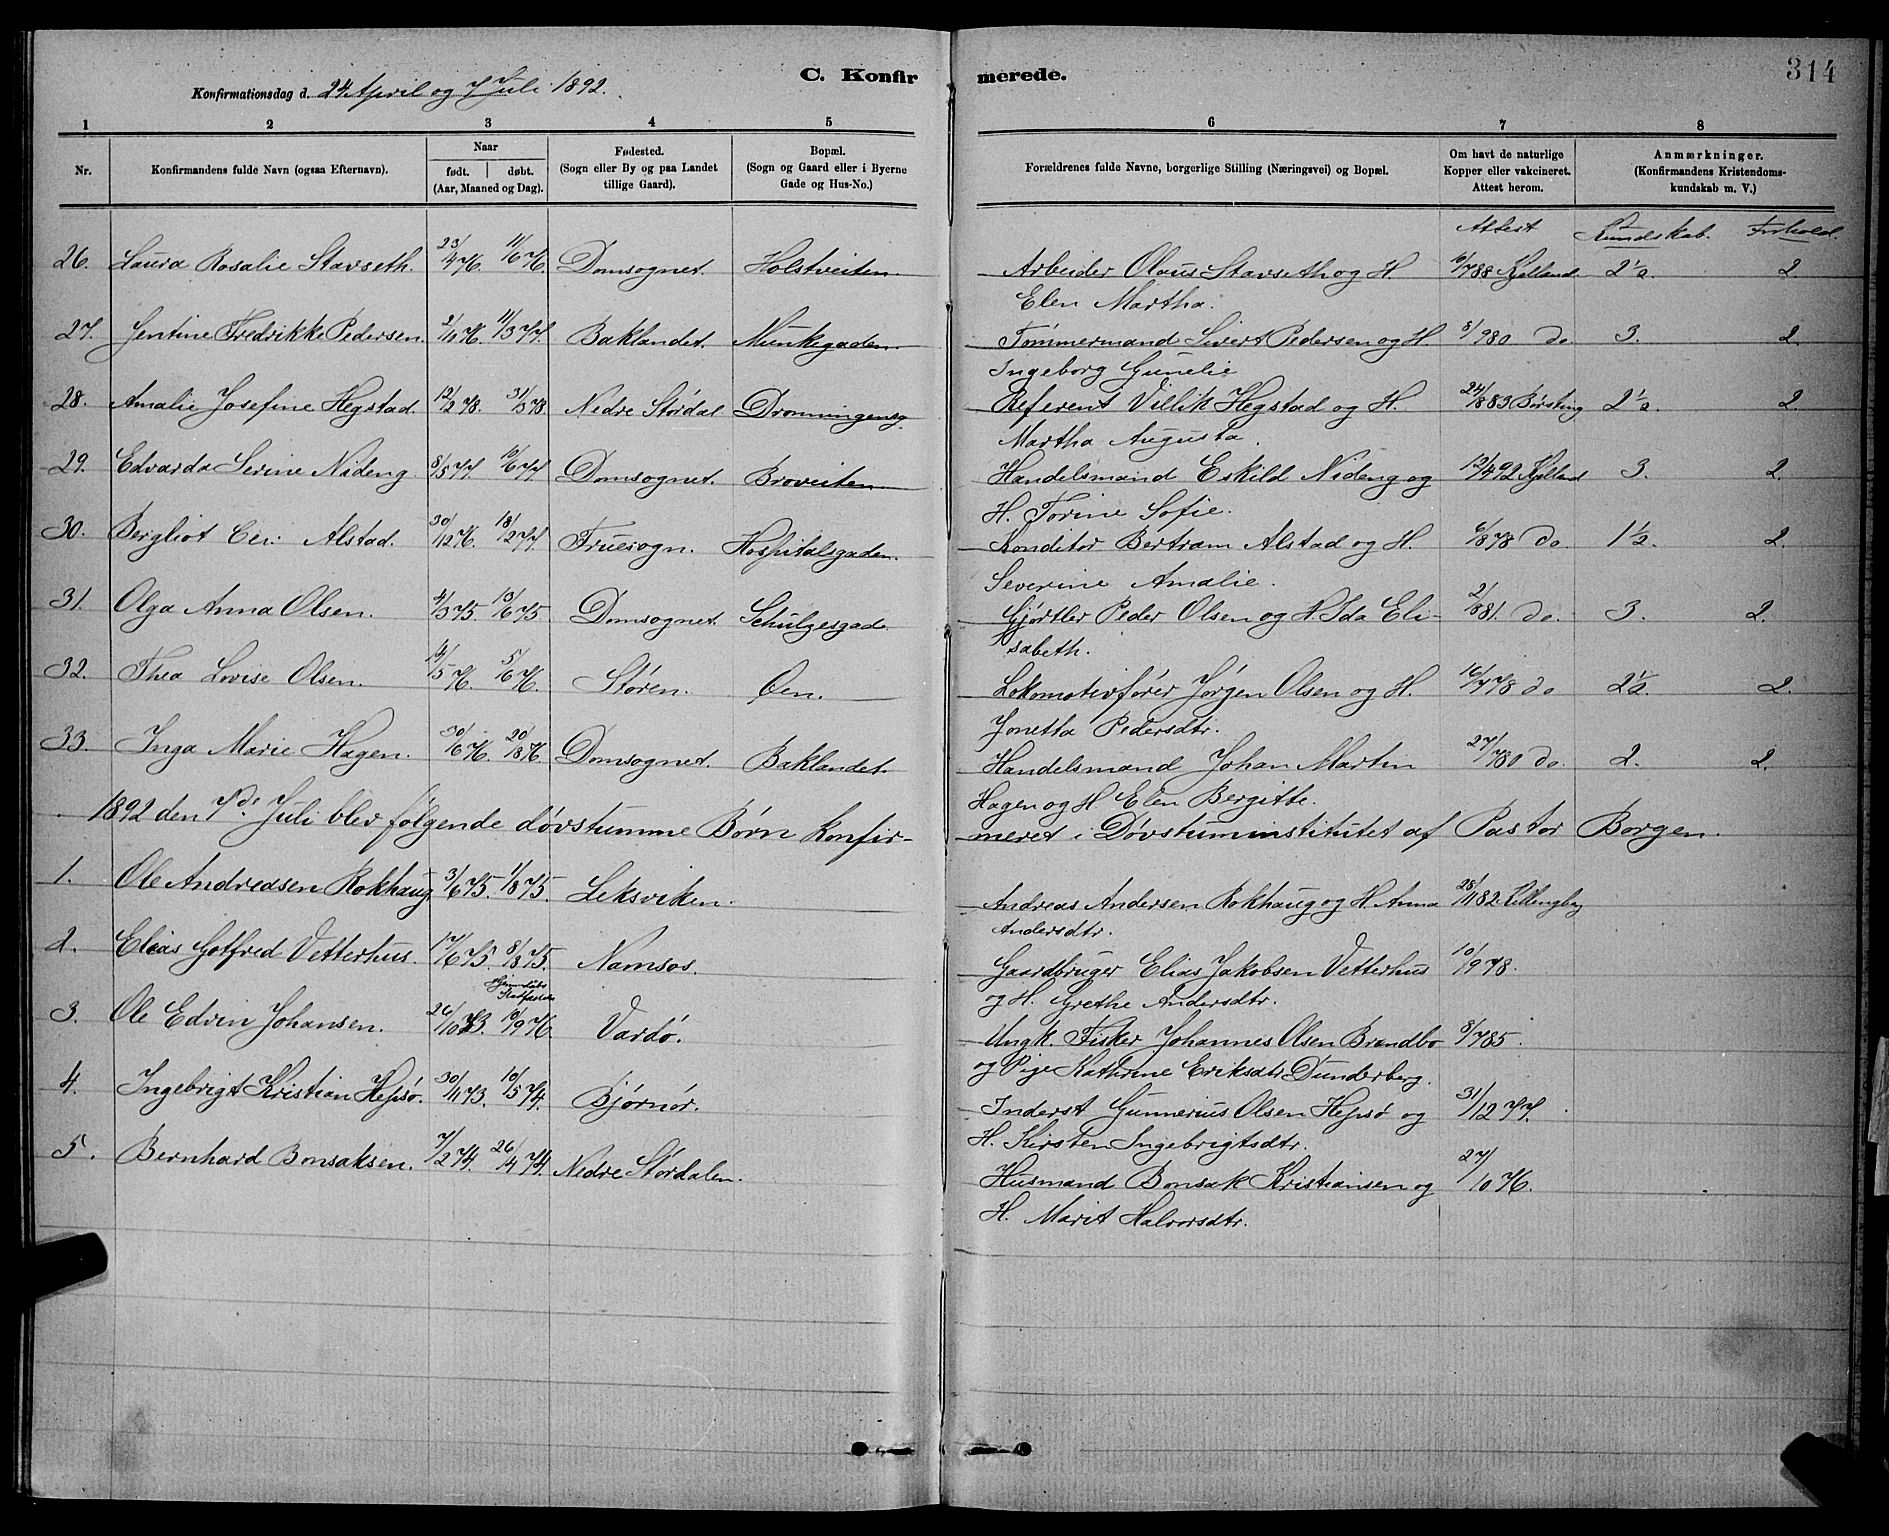 C. Konfirmerede.
314
Konfirmationsdag d. 24 April og 7 Juli 1892.
1 2 3 4 5 6 7 8
Nr. Konfirmandens fulde Navn (ogsaa Efternavn). Naar født. døbt. (Aar, Maaned og Dag). Fødested. (Sogn eller By og paa Landet tillige Gaard). Bopæl. (Sogn og Gaard eller i Byerne Gade og Hus-No.) Forældrenes fulde Navne, borgerlige Stilling (Næringsvei) og Bopæl. Om havt de naturlige Kopper eller vakcineret. Attest herom. Anmærkninger. (Konfirmandens Kristendomskundskab m. V.)
Attest Kundskab. Forhold.
26. Laura Rosalie Stavseth. 23/4 76. 11/6 76. Domsognet. Holstveiten. Arbeider Olaus Stavseth og H. 6/7 88 Kjelland 2 1/2. 2.
Elen Martha.
27. Jentine Fredrikke Pedersen. 2/10 76. 11/3 77. Baklandet. Munkegaden. Tømmermand Sivert Pedersen og H. 8/9 80 do. 3. 2.
Ingeborg Gunelie
28. Amalie Josefine Hegstad. 12/2 78. 31/3 78. Nedre Størdal Dronningensg. Referent Villik Hegstad og H. 24/8 83 Børsting 2 1/2. 2.
Martha Augusta.
29. Edvarda Serine Nideng 8/5 77. 10/6 77. Domsognet. Broveiten Handelsmand Eskild Nideng og 12/4 92 Kjelland 3. 2.
H. Torine Sofie.
30. Bergliot Alstad. 30/12 76. 18/2 77. Fruesogn. Hospitalsgaden. Konditor Bertram Alstad og H. 6/8 78 do. 1 1/2. 2.
Severine Amalie.
31. Olga Anna Olsen. 4/3 75. 13/6 75. Domsognet. Schulzesgade Gjørtler Peder Olsen og H. Ida Eli- 2/8 81. do. 3. 2.
sabeth.
32. Thea Lovise Olsen. 14/5 76. 5/6 76. Støren. Øen. Lokomotivfører Jørgen Olsen og H. 16/7 78 do 2 1/2. 2.
Jonetta Pedersdtr.
33. Inga Marie Hagen. 30/6 76. 20/8 76. Domsognet. Baklandet. Handelsmand Johan Martin 27/7 80 do. 2. 2.
Hagen og H. Elen Bergitte.
1892 den 7de Juli blev følgende døvstumme Børn Konfir-
meret i Døvstuminstitutet af Pastor Borgen.
1. Ole Andreasen Rokhaug 3/6 75. 1/8 75. Leksviken. Andreas Andersen Rokhaug og H. Anna 28/11 82. Killengberg
Andersdtr.
2. Elias Gotfred Vetterhus. 17/6 75. 8/8 75. Namsos. Gaardbruger Elias Jakobsen Vetterhus 10/9 78.
og H. Grethe Andersdtr.
Hjemdøbt Stadfæstet
3. Ole Edvin Johansen. 26/10 73. 10/9 76. Vardø. Ungk. Fisker Johannes Olsen Brandbo 8/7 85.
og Pige Kathrine Eriksdtr. Dunderberg.
4. Ingebrigt Kristian Hepsø. 30/11 73. 10/5 74. Bjørnør. Inderst Gunnerius Olsen Hepsø og 31/12 77.
H. Kirsten Ingebrigtsdtr.
5. Bernhard Bonsaksen. 7/2 74. 26/4 74. Nedre Størdalen. Husmand Bonsak Kristiansen og 27/10 76.
H. Marit Halvorsdtr.